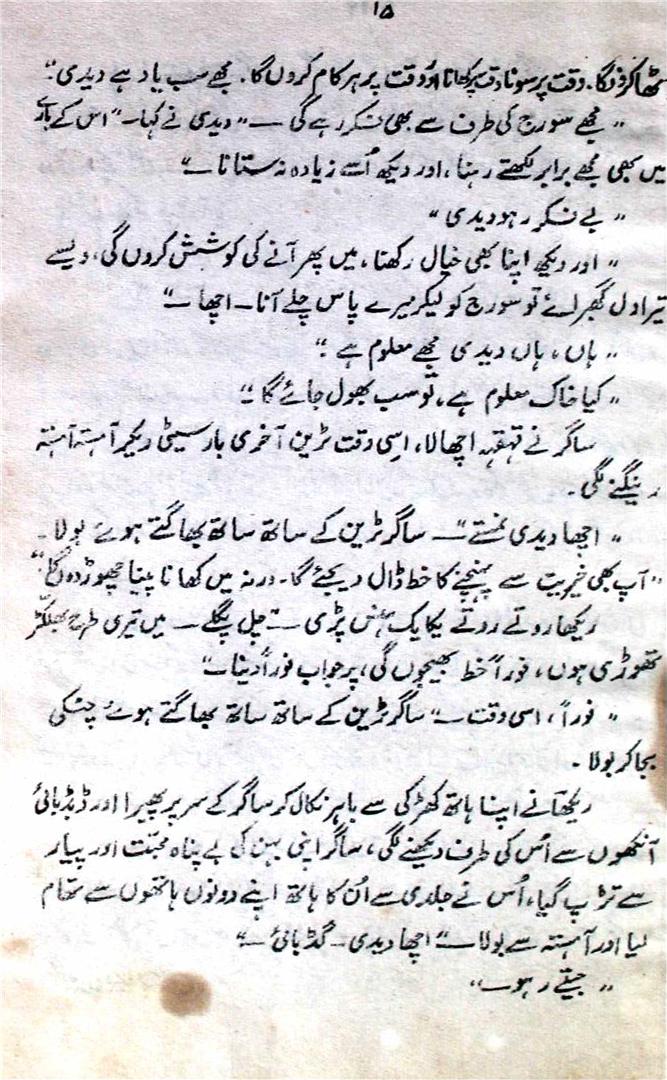 ۱۵
کروں گا۔ وقت پر سونا وقت پر کھانا اور وقت پر ہر کام کروں گا۔ مجھے سب یاد ہے دیدی۔"
"مجھے سورج کی طرف سے بھی فکر رہے گی —" دیدی نے کہا۔ "اس کے بارے
میں بھی مجھے برابر لکھتے رہنا، اور دیکھ اُسے زیادہ نہ ستانا —"
"بے فکر رہو دیدی"
"اور دیکھ اپنا بھی خیال رکھنا، میں پھر آنے کی کوشش کروں گی، ویسے
تیرا دل گھبرائے تو سورج کو لیکر میرے پاس چلے آنا۔ اچھا —"
"ہاں، ہاں دیدی مجھے معلوم ہے۔"
"کیا خاک معلوم ہے، تو سب بھول جائے گا۔"
ساگر نے قہقہہ اچھالا، اسی وقت ٹرین آخری بار سیٹی دیکر آہستہ آہستہ
رینگنے لگی۔
"اچھا دیدی نمستے —" ساگر ٹرین کے ساتھ ساتھ بھاگتے ہوئے بولا۔
"آپ بھی خیریت سے پہنچنے کا خط ڈال دیجئے گا۔ ورنہ میں کھانا پینا چھوڑ دوں گا۔"
ریکھا روتے روتے یکایک ہنس پڑی — "چل پگلے — میں تیری طرح بھلکڑ
تھوڑی ہوں، فوراً خط بھیجوں گی، پر جواب فوراً دینا —"
"فوراً، اسی وقت —" ساگر ٹرین کے ساتھ ساتھ بھاگتے ہوئے چٹکی
بجا کر بولا۔
ریکھا نے اپنا ہاتھ کھڑکی سے باہر نکال کر ساگر کے سر پر پھیرا اور ڈبڈبائی
آنکھوں سے اُس کی طرف دیکھنے لگی، ساگر اپنی بہن کی بے پناہ محبت اور پیار
سے تڑپ گیا، اُس نے جلدی سے اُن کا ہاتھ اپنے دونوں ہاتھوں سے تھام
لیا اور آہستہ سے بولا — "اچھا دیدی۔ گڈ بائی —"
"جیتے رہو —"